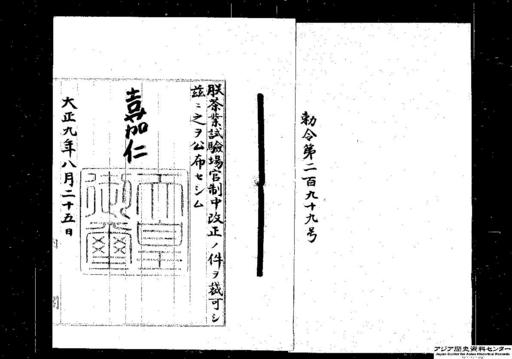 勅令第二百九十九号
朕茶業試驗場官制中改正ノ件ヲ裁可シ
茲ニ之ヲ公布セシム
嘉仁
天皇
御璽
大正九年八月二十五日
アジア歴史資料センター
Japan Center for Asian Historical Records